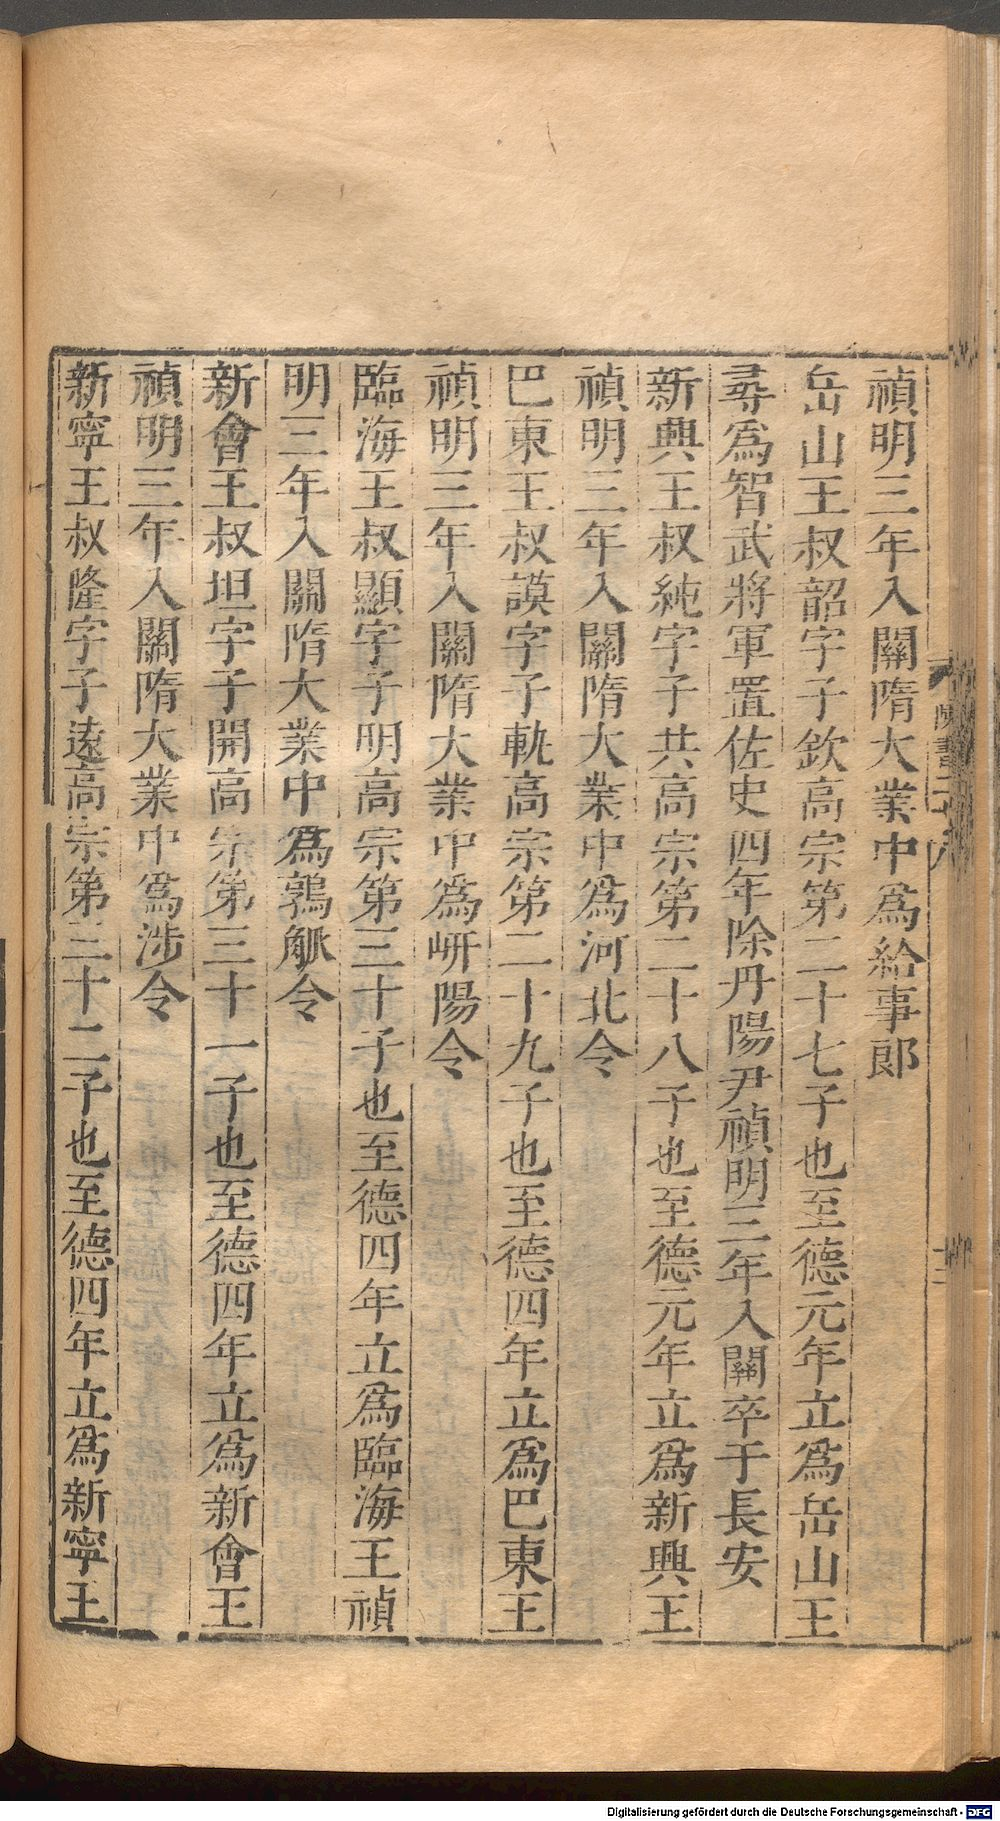 禎明三年入關隋大業中爲給事郎
岳山王叔韶字子欽高宗第二十七子也至德元年立爲岳山王
尋爲智武將軍置佐史四年除丹陽尹禎明三年入關卒于長安
新興王叔純字子共高宗第二十八子也至德元年立爲新興王
禎明三年入關隋大業中爲河北令
巴東王叔謨字子軌高宗第二十九子也至德四年立爲巴東王
禎明三年入關隋大業中爲岍陽令
臨海王叔顯字子明高宗第三十子也至德四年立爲臨海王禎
明三年入關隋大業中爲鶉觚令
新會王叔坦字子開高宗第三十一子也至德四年立爲新會王
禎明三年入關隋大業中爲涉令
新寧王叔隆字子遠高宗第三十二子也至德四年立爲新寧王
Digitalisierung gefördert durch die Deutsche Forschungsgemeinschaft - DFG